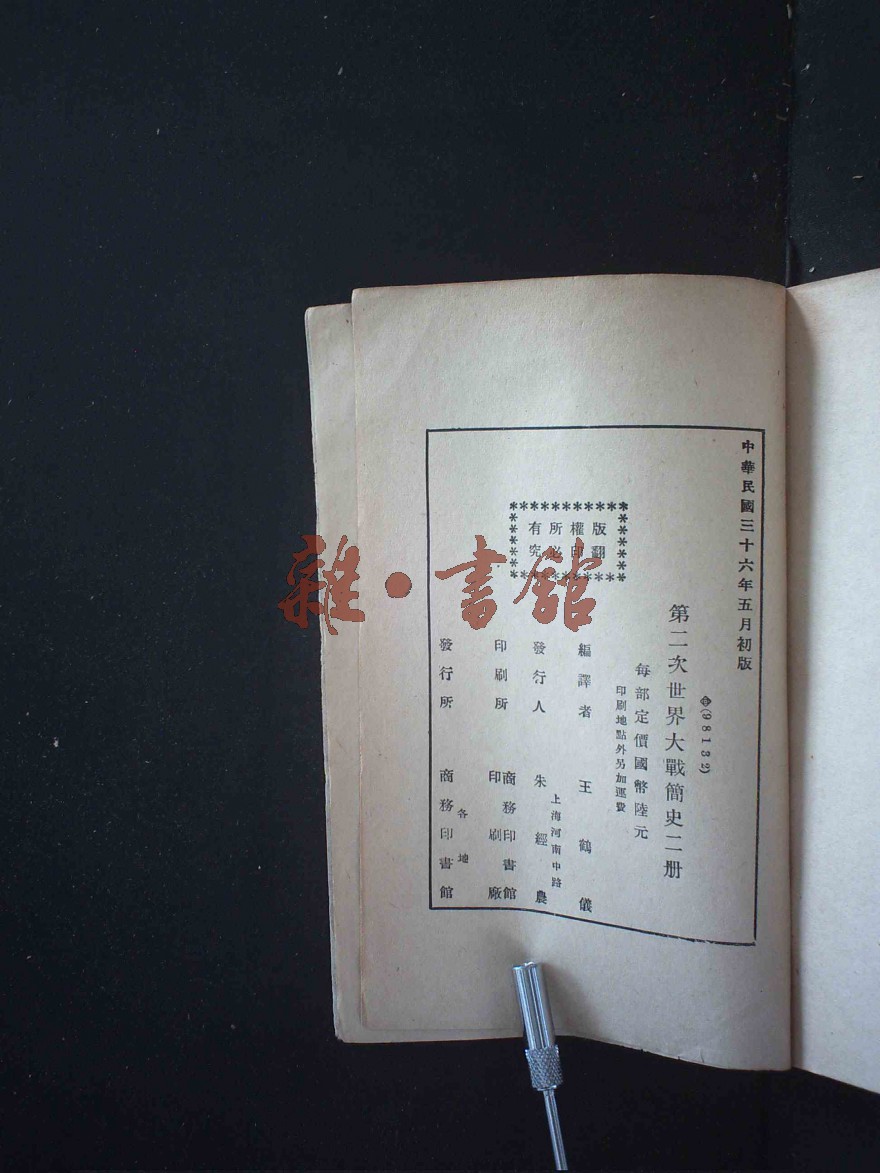 中華民國三十六年五月初版
(98132)
第二次世界大戰簡史二册
每部定價國幣陸元
印刷地點外另加運費
版權所有
翻印必究
編譯者 王鶴儀
上海河南中路
發行人 朱經農
印刷所 商務印書館
印刷廠
各地
發行所 商務印書館
雜·書館